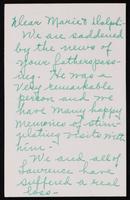 Dear Marie & Dolph-
We are saddened
by the news of
your father's pass-
ing. He was a
very remarkable
person and we
have many happy
memories of stim-
ulating visits with
him.
We and all of
Lawrence have
suffered a real
loss-